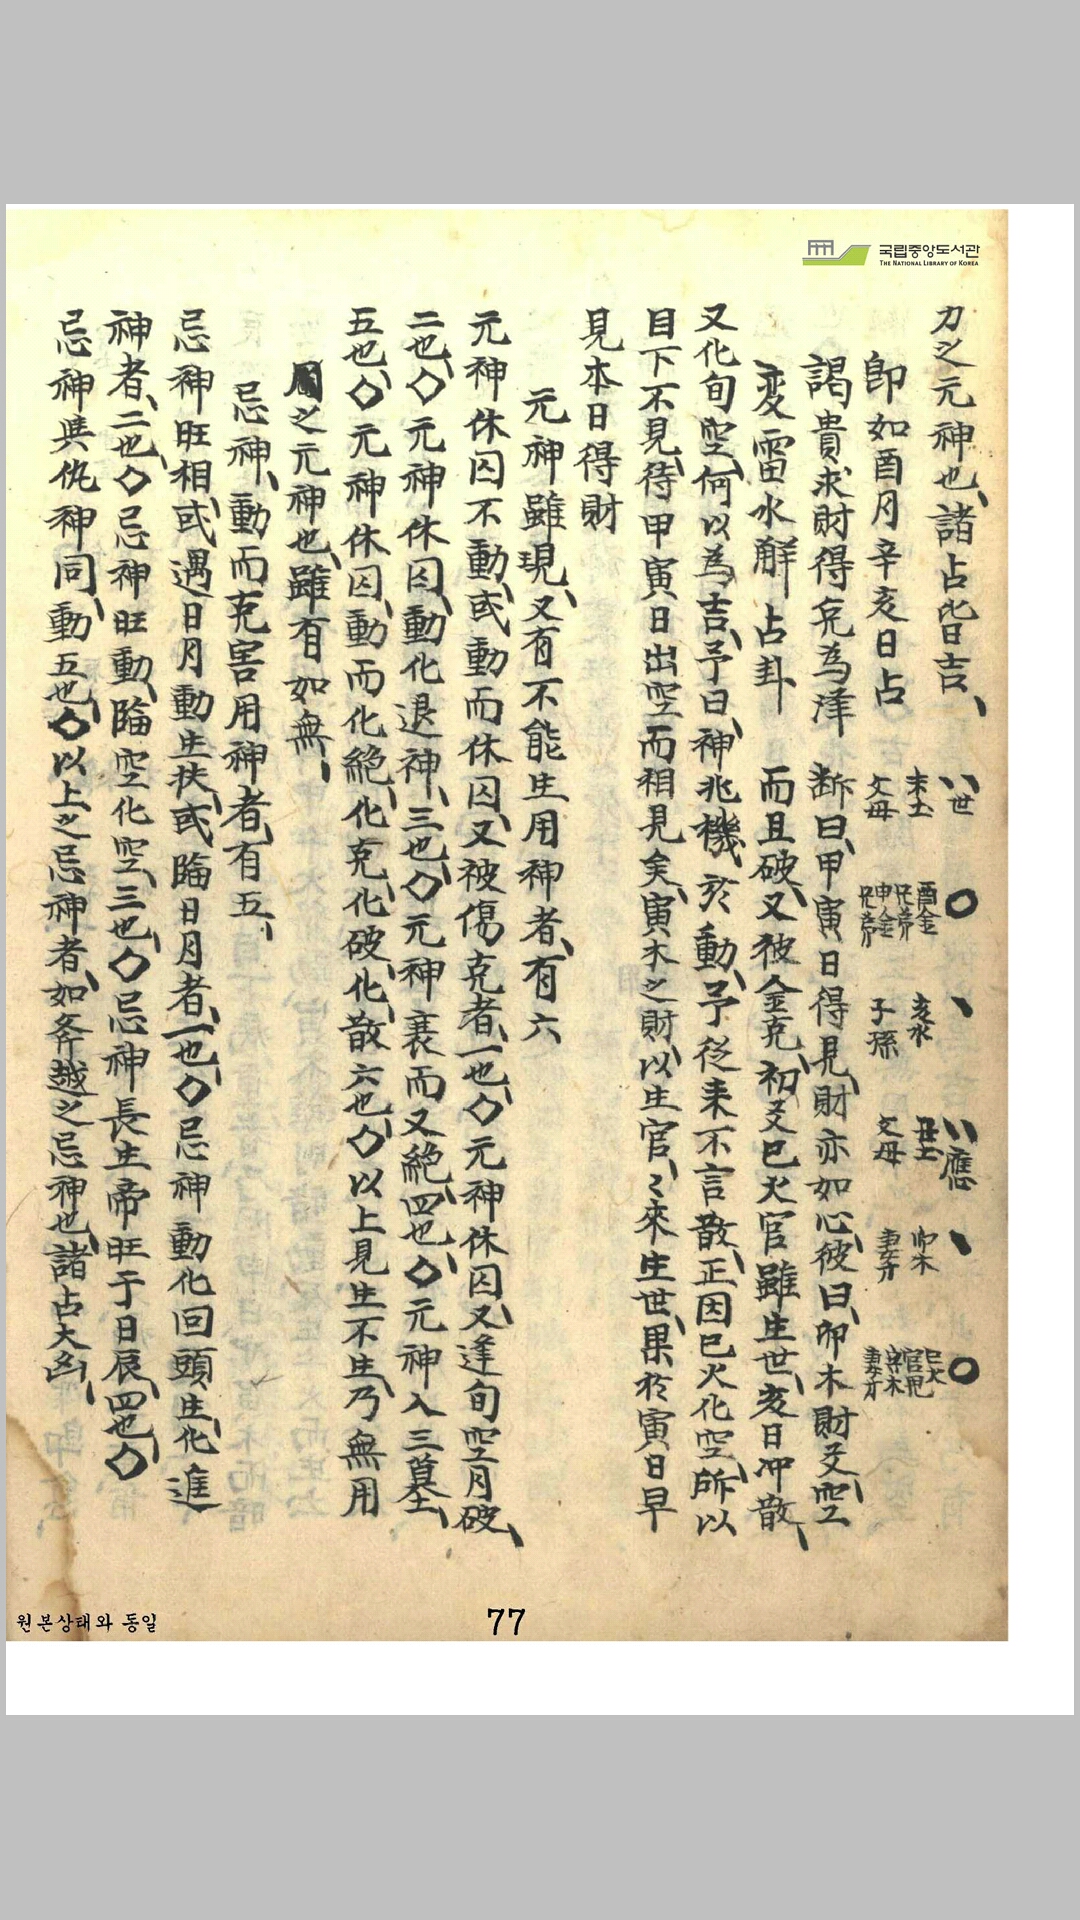 국립중앙도서관
THE NATIONAL LIBRARY OF KOREA
力之元神也、諸占皆吉、
即如酉月辛亥日占
謁貴求財得兌為澤
変雷水解占卦
世 應
未土 酉金 亥水 丑土 卯木 巳火
父母 兄弟 子孫 父母 妻才 官鬼
申金 寅木
兄弟 妻才
断曰、甲寅日得見、財亦如心、彼曰、卯木財爻、空
而且破、又彼金克、初爻巳火官雖生世、亥日冲散、
又化旬空、何以為吉、予曰、神兆機於動、予從来不言散、正因巳火化空、所以
目下不見、待甲寅日出空而相見矣、寅木之財、以生官、〻來生世、果於寅日早
見本日得財
元神雖現、又有不能生用神者、有六
元神休囚不動、或動而休囚、又被傷克者、一也、◇元神休囚、又逢旬空月破、
二也、◇元神休囚、動化退神、三也、◇元神衰而又絕、四也、◇元神入三墓、
五也、◇元神休囚、動而化絕、化克、化破、化散、六也、◇以上見生不生、乃無用
之元神也、雖有如無、
忌神、動而克害用神者、有五、
忌神旺相、或遇日月動生扶、或臨日月者、一也、◇忌神動化回頭生、化進
神者、二也、◇忌神旺動、臨空化空、三也、◇忌神長生帝旺于日辰、四也、◇
忌神與仇神同動、五也、◇以上之忌神者、如斧越之忌神也、諸占大凶、
원본상태와 동일
77